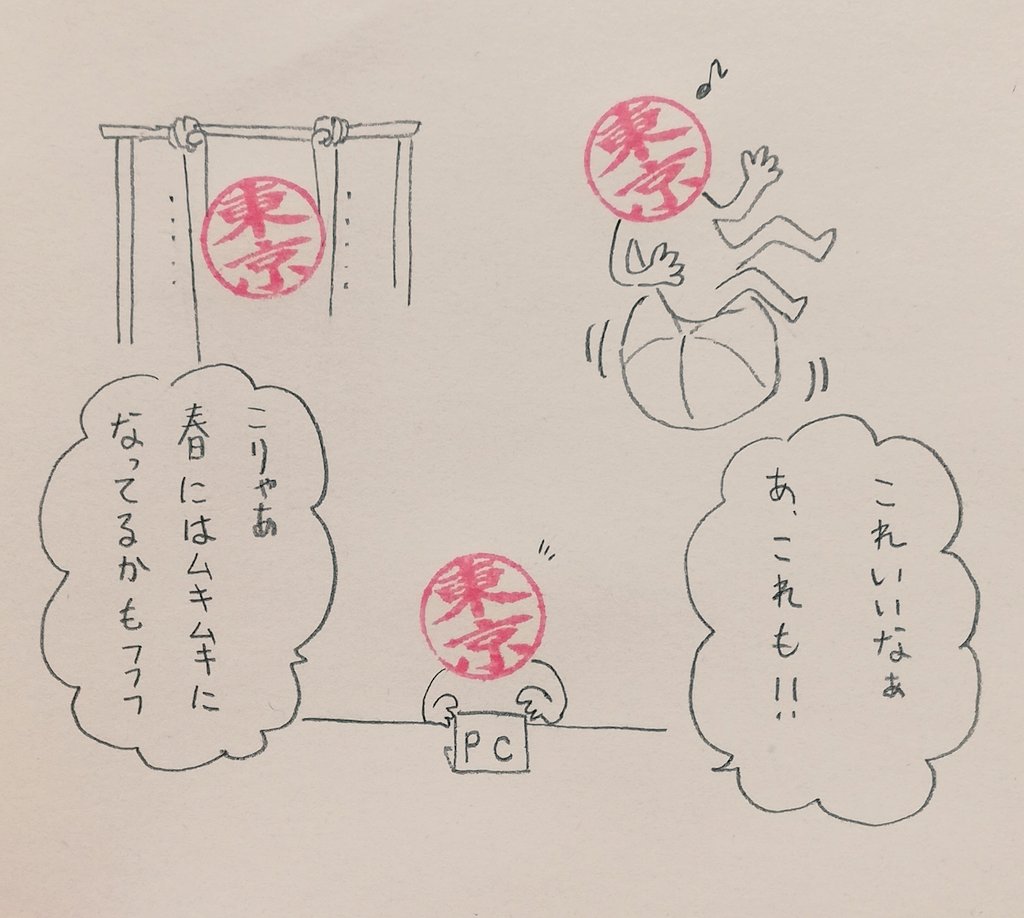 東京
東京
これいいなぁ
あ、これも!!
こりゃあ
春にはムキムキに
なってるかもフフフ
東京
PC